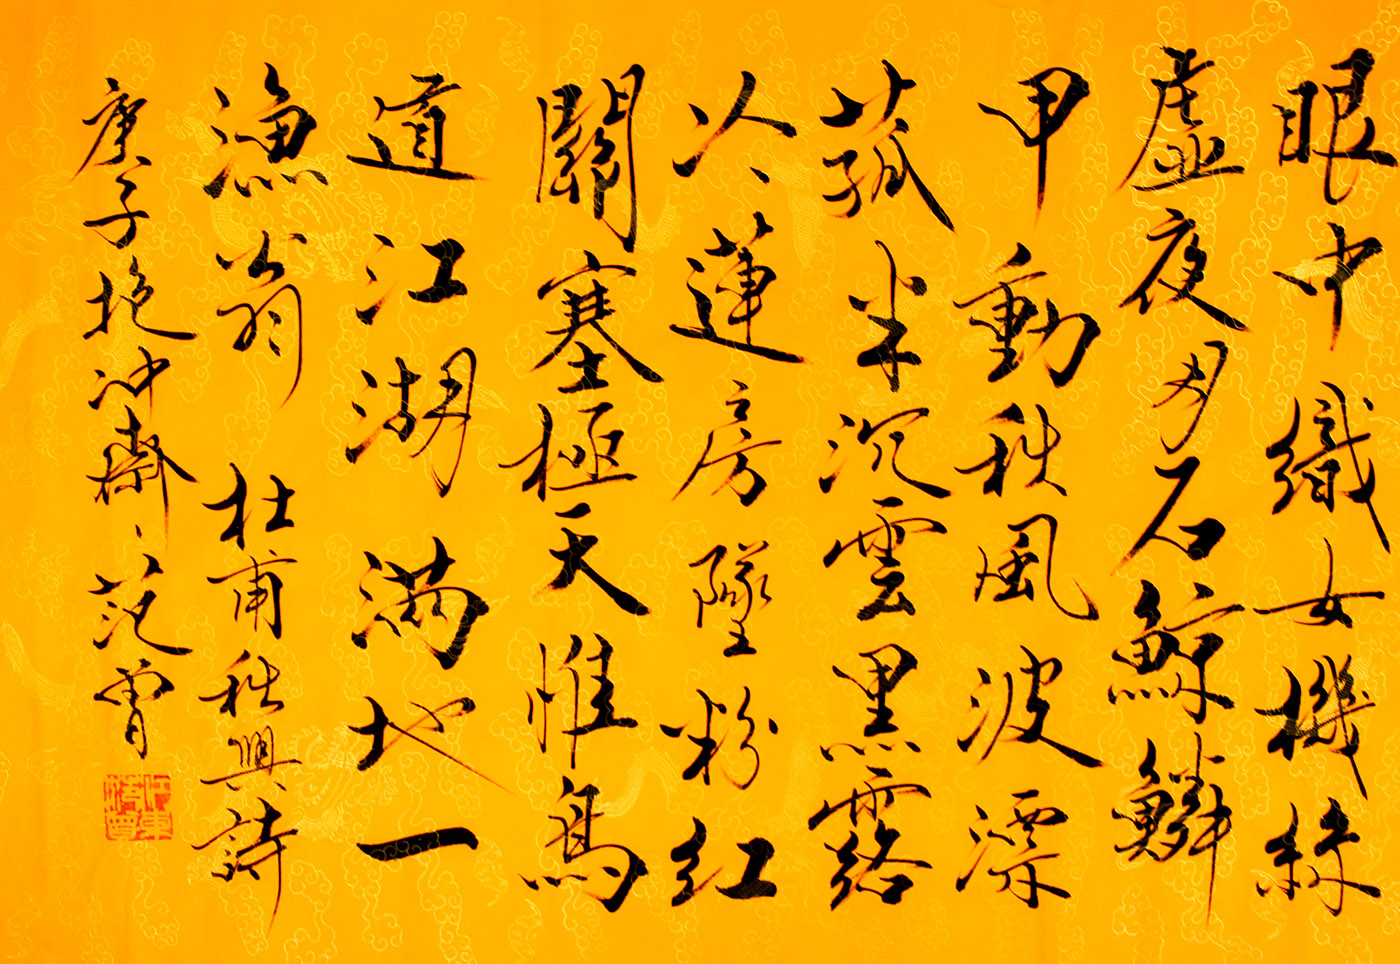 眼中織女機絲
虛夜月石鯨鱗
甲動秋風波漂
菰米沉雲黑露
冷蓮房墜粉紅
關塞極天惟鳥
道江湖滿地一
漁翁 杜甫秋興詩
庚子抱冲齋、范曾